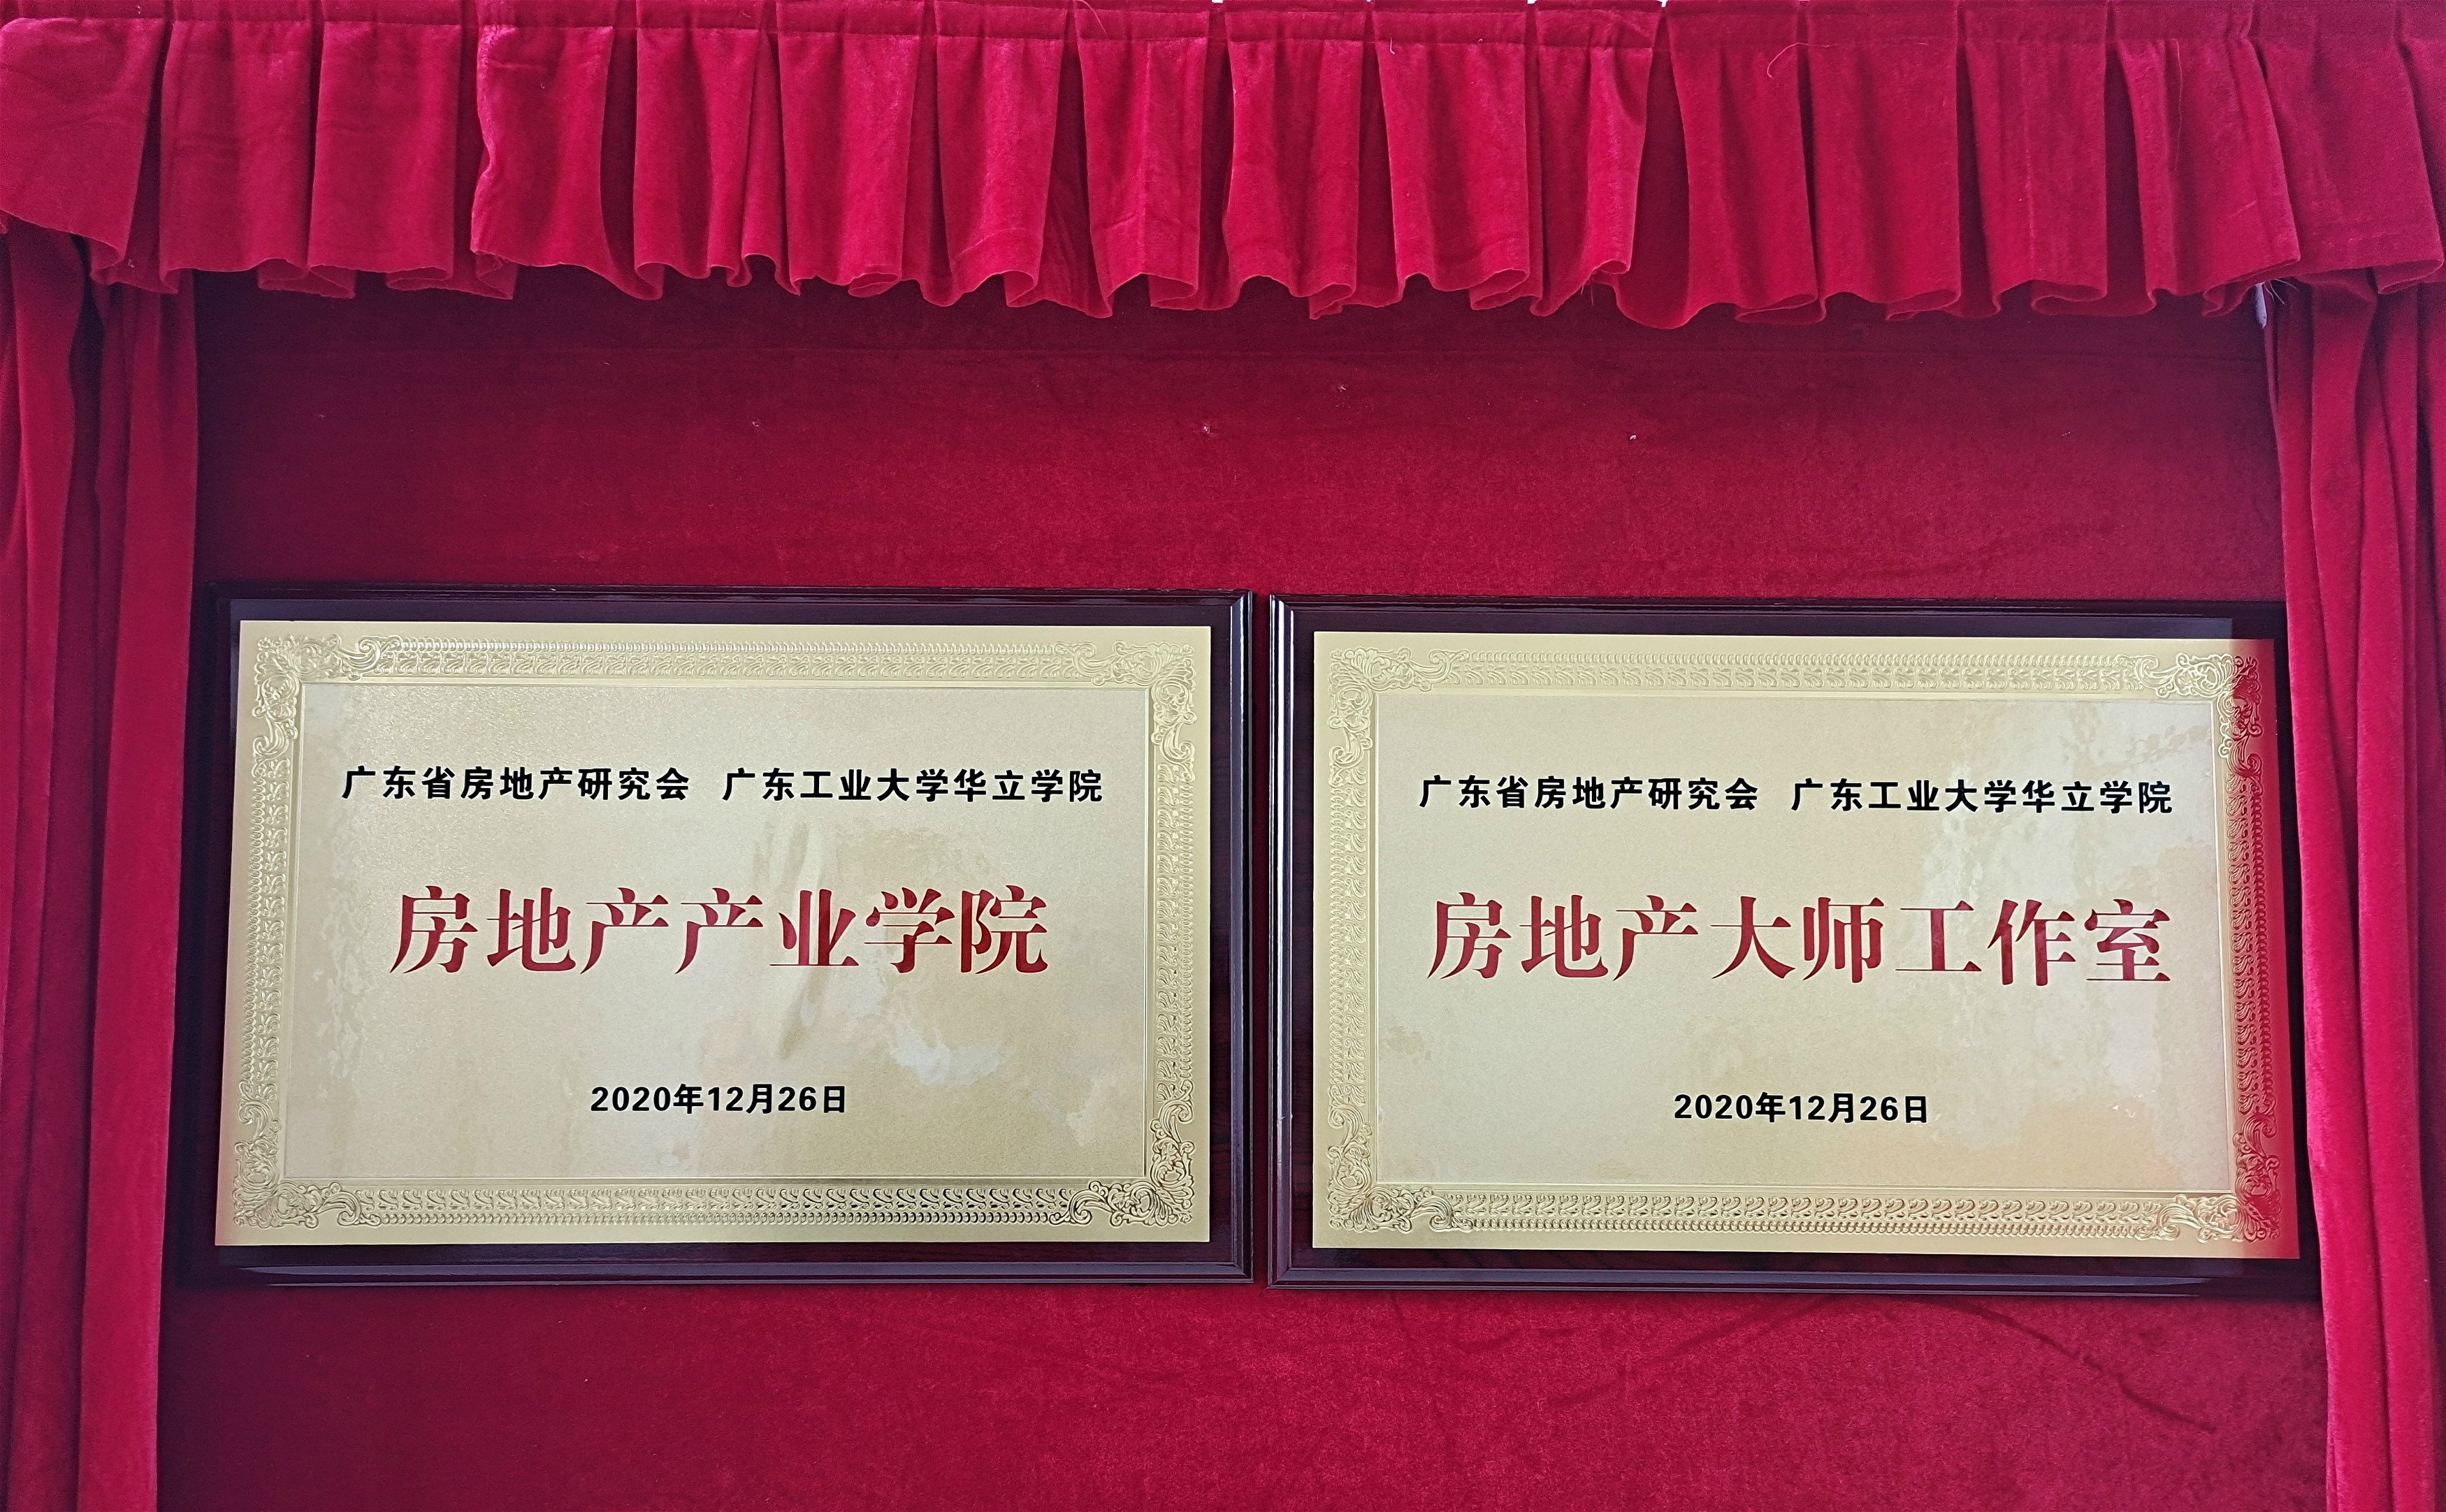 广东省房地产研究会 广东工业大学华立学院
房地产产业学院
2020年12月26日
广东省房地产研究会 广东工业大学华立学院
房地产大师工作室
2020年12月26日